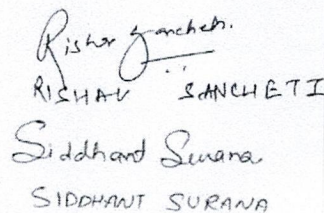 Rishav Sancheti.
RISHAV SANCHETI
Siddhant Surana
SIDDHANT SURANA